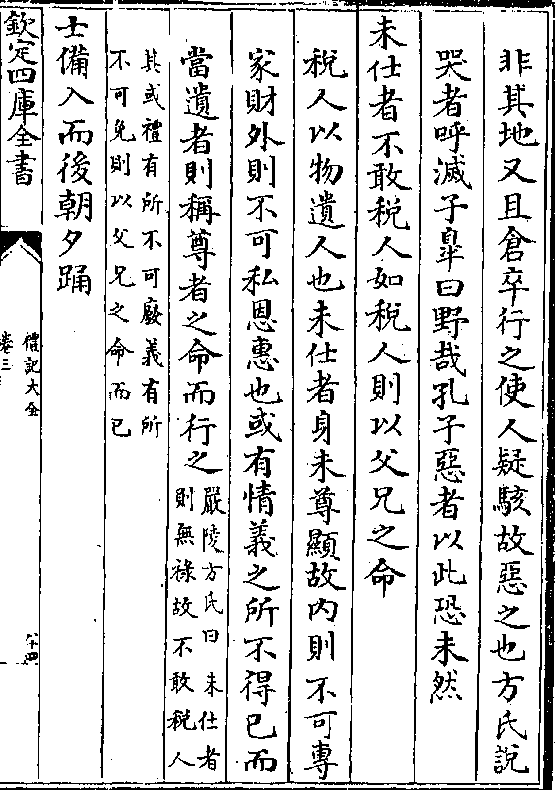 非其地又且倉卒行之使人疑駭故惡之也方氏説
哭者呼滅子臯曰野哉孔子惡者以此恐未然
未仕者不敢税人如税人則以父兄之命
税人以物遺人也未仕者身未尊顯故内則不可專
家財外則不可私恩惠也或有情義之所不得已而
當遺者則稱尊者之命而行之
嚴陵方氏曰未仕者
則無祿故不敢税人
其或禮有所不可廢義有所
不可免則以父兄之命而已
士備入而後朝夕踊
欽定四庫全書
禮記大全
卷三
八十四